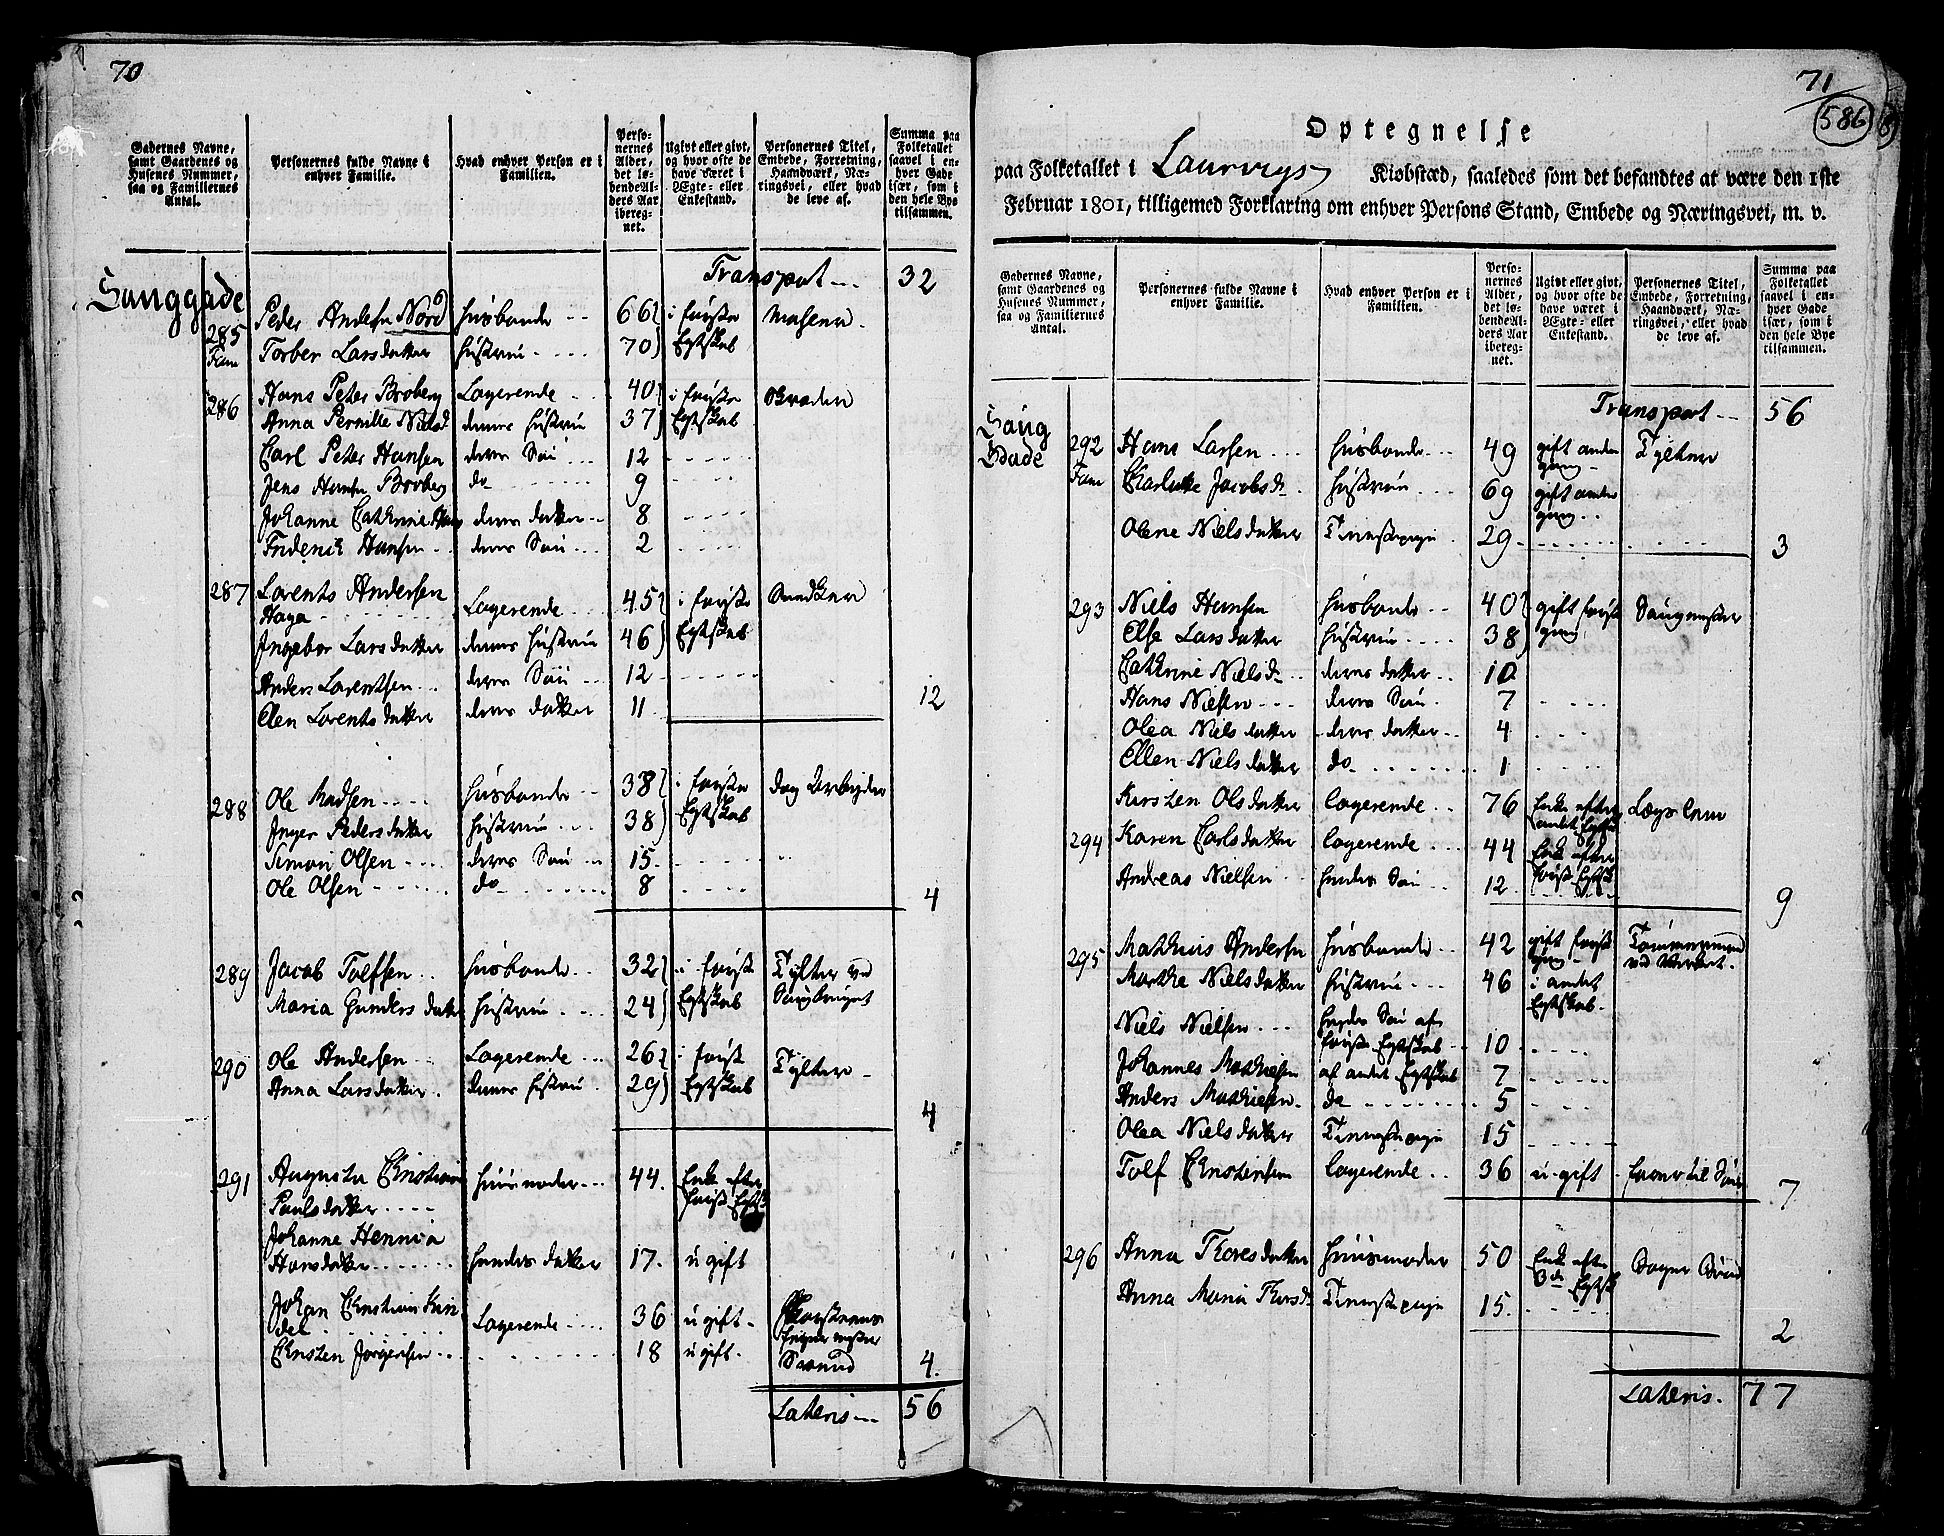 70
Gadernes Navne, samt Gaardenes og Husenes Nummer, saa og Familiernes Antal.
Personernes fulde Navne i enhver Familie.
Hvad enhver Person er i Familien.
Personernes Alder, det løbende Alders Aar iberegnet.
Ugivt eller givt, og hvor ofte de have været i Ægte- eller Enkestand.
Personernes Titel, Embede, Forretning, Haandværk, Næringsvei, eller hvad de leve af.
Summa paa Folketallet saavel i enhver Gade især, som i den hele Bye tilsammen.
Transport 32
Sauggade
285 Peder Andersn Nord husbonde 66 i første
Fam Torber Larsdatter hustrue 70 Egtskab
286 Hans Peter Broberg Logerende 40 i første
Anna Pernille Nielsd hustrue 37 Egtskab
Carl Peter Hansen deres Søn 12
Jens Hansn Broberg do 9
Johanne Cathrine deres datter 8
Friderich Hansen deres Søn 2
287 Lorents Andersen
Haga Logerende 45 i første
Ingebor Larsdatter hustrue 46 Egtskab
Anders Lorentsen deres Søn 12
Elen Lorentsdatter deres datter 11 12
288 Ole Madsen husbonde 38 i første dag Arbejder
Inger Pedersdatter hustrue 38 Egtskab
Simon Olsen deres Søn 15
Ole Olsen do 8 4
289 Jacob Tolfsen husbonde 32 i første
Maria Gundersdatter hustrue 24 Egtskab Saugbruget
290 Ole Andersen Logerende 26 i første
Anna Larsdatter hustrue 29 Egtskab 4
291 Augusta Christiana huusmoder 44 Enke efter
Paulsdatter første Egtsk
Johanne
Hansdatter hendes datter 17 ugift
Johan Christian
Logerende 36 ugift
Christen Jørgensen 18 ugift 4
Lateris 56
71
586
Optegnelse
paa Folketallet i Laurvigs Kiøbstæd, saaledes som det befandtes at være den 1ste
Februar 1801, tilligemed Forklaring om enhver Persons Stand, Embede og Næringsvei, m. v.
Gadernes Navne, samt Gaardenes og Husenes Nummer, saa og Familiernes Antal.
Personernes fulde Navne i enhver Familie.
Hvad enhver Person er i Familien.
Personernes Alder, det løbende Alders Aar iberegnet.
Ugivt eller givt, og hvor ofte de have været i Ægte- eller Enkestand.
Personernes Titel, Embede, Forretning, Haandværk, Næringsvei, eller hvad de leve af.
Summa paa Folketallet saavel i enhver Gade især, som i den hele Bye tilsammen.
Transport 56
Saug
Gade
292 Hans Larsen husbonde 49 gift anden gang
Fam Jacobsd hustrue 69 gift anden gang
Olene Nielsdatter Tienistepige 29 3
293 Niels Hansen husbonde 40 gift første Saugmester
Else Larsdatter hustrue 38 gang
Cathrine Nielsd deres datter 10
Hans Nielsen deres Søn 7
Olea Nielsdatter deres datter 4
Ellen Nielsdatter do 1
Kirsten Olsdatter logerende 76 Enke efter andet Egtsk Lægs Lem
294 Karen Carlsdatter logerende 44 Enke efter første Egtsk
Andreas Nielsen hendes Søn 12 9
295 Mathias Andersen husbonde 42 gift første gang Tømmermand ved Verket
Marthe Nielsdatter hustrue 46 i andet Egtskab
Niels Nielsen hendes Søn af første Egtskab 10
Johannes Mathiesen af andet Egtskab 7
Anders Mathiesen do 5
Olea Nielsdatter Tienistepige 15
Tolf Christensen logerende 36 u-gift farer til Søes 7
296 Anna Thoresdatter huusmoder 50 Enke efter 3de Egtsk
Anna Maria Thorsd Tienistepige 15 2
Lateris 77